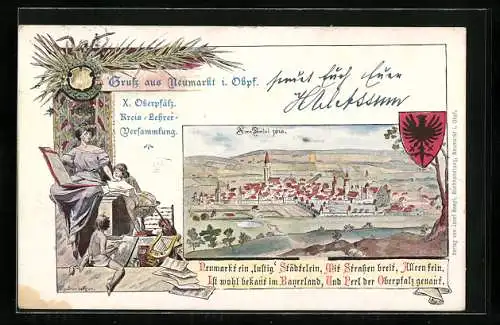 Gruß aus Neumarkt i. Obpf.
X. Oberpfälz.
Kreis-Lehrer-
Versammlung.
sendet Euch Euer
Neumarkt ein „lustig" Städtelein, Mit Straßen breit, Alleen fein.
Ist wohl bekant im Bayerland, Und Perl der Oberpfalz genant.
Verlag von Josef Boegl, Buchhandlung, Neumarkt i. Obpf.